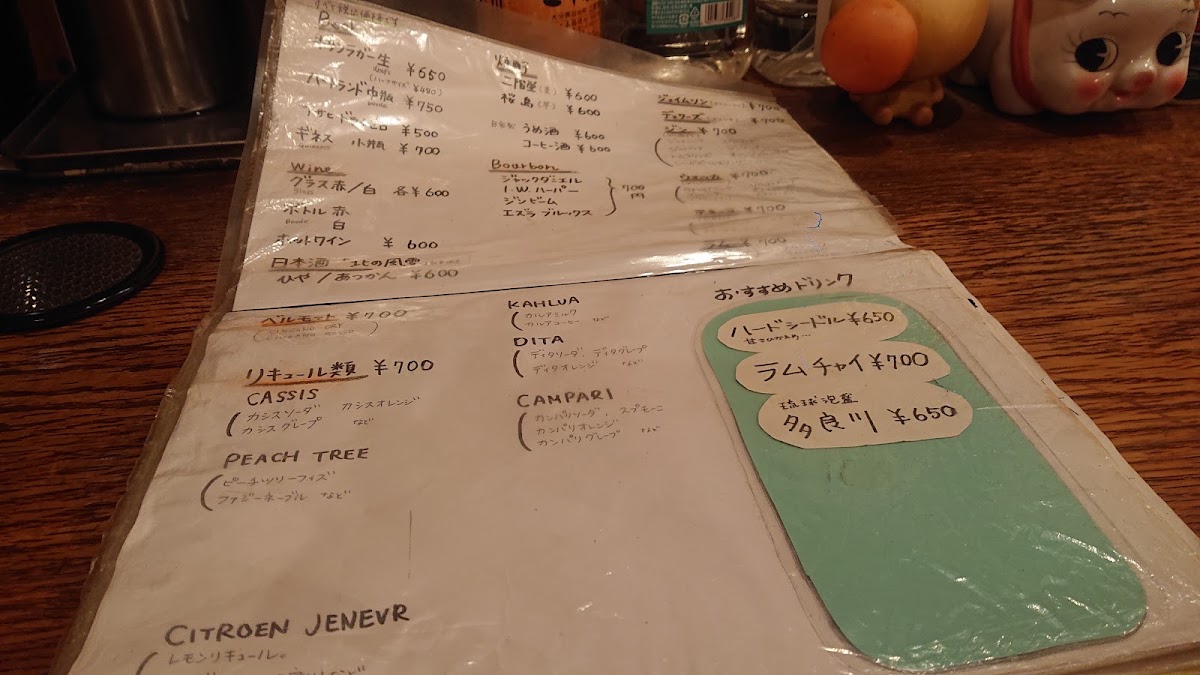 すべて税込価格です
キリンラガー生 ¥650
(ハーフサイズ ¥480)
ハートランド中瓶 ¥750
¥500
ギネス 小瓶 ¥700
Wine
グラス赤/白 各¥600
ボトル 赤
白
ホットワイン ¥600
日本酒 "北の風雪
ひや/あつかん ¥600
焼酎
二階堂(麦) ¥600
桜島(芋) ¥600
自家製 うめ酒 ¥600
コーヒー酒 ¥600
Bourbon
ジャックダニエル
I.W.ハーパー
ジンビーム
エズラ ブルックス
700円
ジェイムソン ¥700
デュワーズ ¥700
ジン ¥700
ウォッカ ¥700
¥700
ラム ¥700
ベルモット ¥700
リキュール類 ¥700
CASSIS
カシスソーダ カシスオレンジ
カシスグレープ など
PEACH TREE
ピーチツリーフィズ
ファジーネーブル など
CITROEN JENEVR
レモンリキュール。
KAHLUA
カルアミルク
カルアコーヒー など
DITA
ディタソーダ、ディタグレープ
ディタオレンジ など
CAMPARI
カンパリソーダ、スプモーニ
カンパリオレンジ
カンパリグレープ など
おすすめドリンク
ハードシードル ¥650
甘さひかえめ…
ラムチャイ ¥700
琉球泡盛
多良川 ¥650